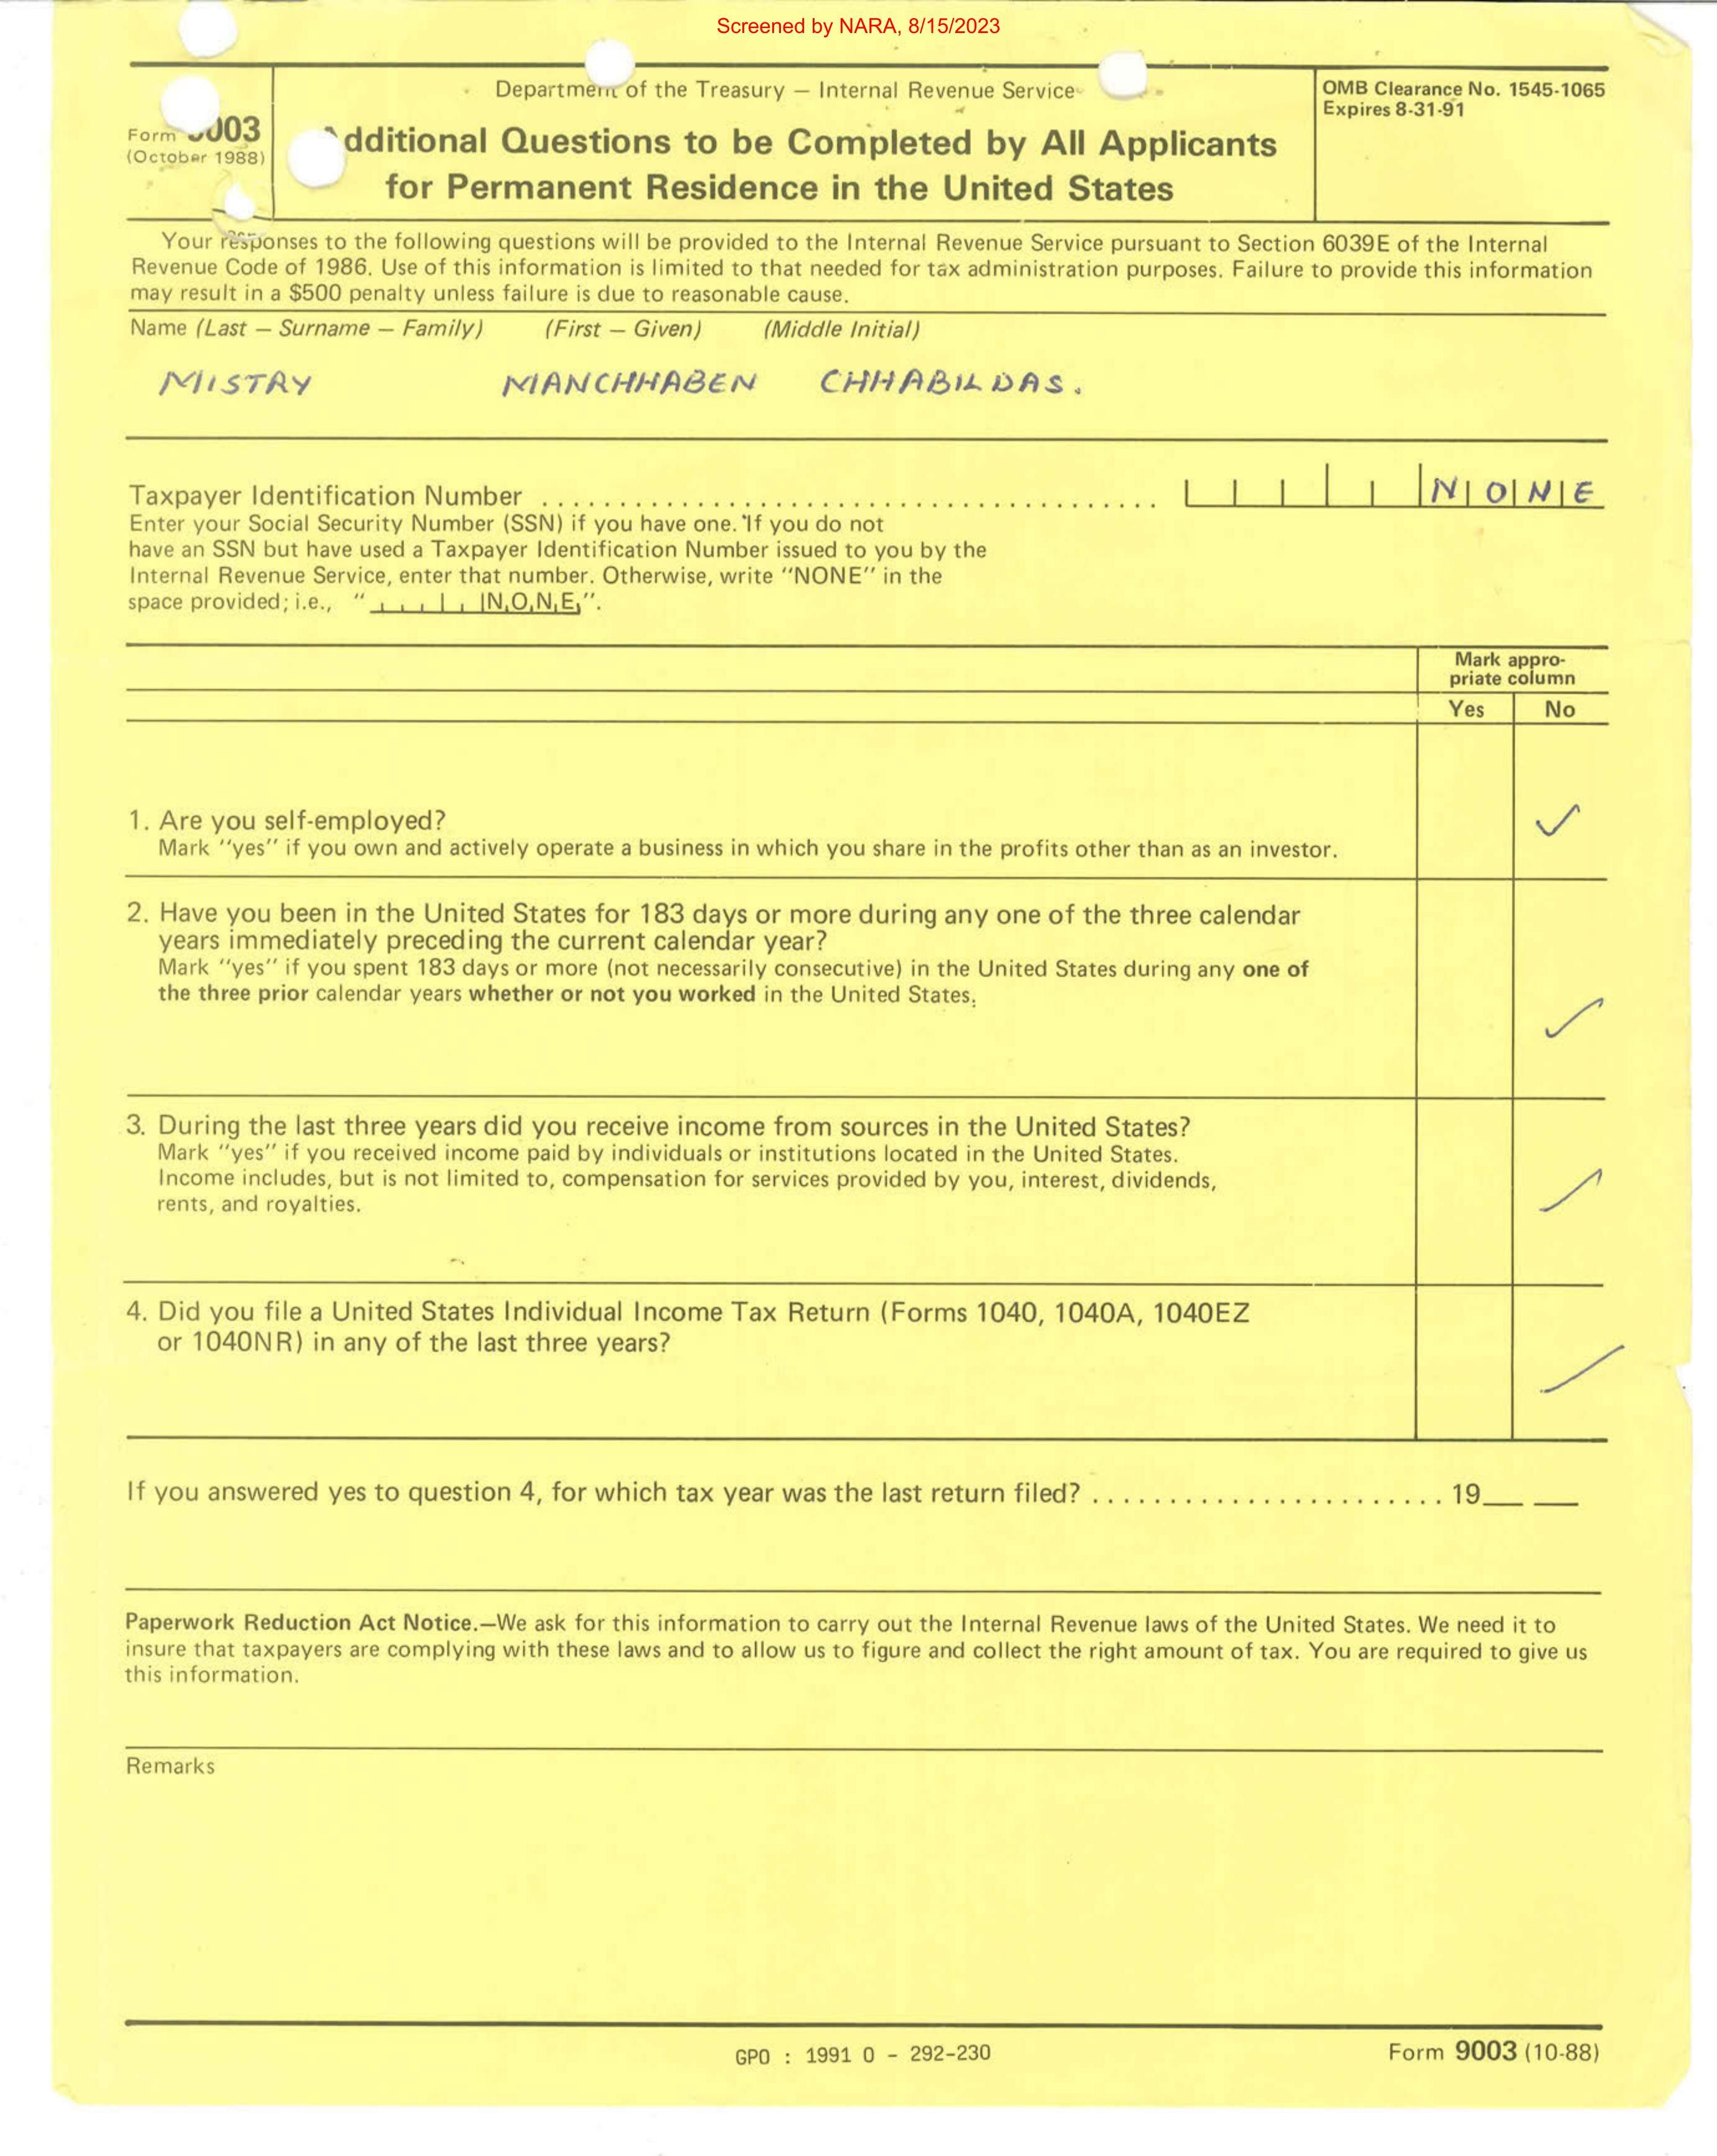 Screened by NARA, 8/15/2023
Department of the Treasury — Internal Revenue Service
OMB Clearance No. 1545-1065
Expires 8-31-91
Form 9003
(October 1988)
Additional Questions to be Completed by All Applicants
for Permanent Residence in the United States
Your responses to the following questions will be provided to the Internal Revenue Service pursuant to Section 6039E of the Internal
Revenue Code of 1986. Use of this information is limited to that needed for tax administration purposes. Failure to provide this information
may result in a $500 penalty unless failure is due to reasonable cause.
Name (Last — Surname — Family) (First — Given) (Middle Initial)
MISTRY MANCHHABEN CHHABILDAS.
Taxpayer Identification Number
NONE
Enter your Social Security Number (SSN) if you have one. If you do not
have an SSN but have used a Taxpayer Identification Number issued to you by the
Internal Revenue Service, enter that number. Otherwise, write "NONE" in the
space provided; i.e., " N,O,N,E,".
Mark appro-
priate column
Yes No
1. Are you self-employed?
Mark "yes" if you own and actively operate a business in which you share in the profits other than as an investor.
2. Have you been in the United States for 183 days or more during any one of the three calendar
years immediately preceding the current calendar year?
Mark "yes" if you spent 183 days or more (not necessarily consecutive) in the United States during any one of
the three prior calendar years whether or not you worked in the United States.
3. During the last three years did you receive income from sources in the United States?
Mark "yes" if you received income paid by individuals or institutions located in the United States.
Income includes, but is not limited to, compensation for services provided by you, interest, dividends,
rents, and royalties.
4. Did you file a United States Individual Income Tax Return (Forms 1040, 1040A, 1040EZ
or 1040NR) in any of the last three years?
If you answered yes to question 4, for which tax year was the last return filed? ....................... 19__ __
Paperwork Reduction Act Notice.—We ask for this information to carry out the Internal Revenue laws of the United States. We need it to
insure that taxpayers are complying with these laws and to allow us to figure and collect the right amount of tax. You are required to give us
this information.
Remarks
GPO : 1991 O - 292-230
Form 9003 (10-88)